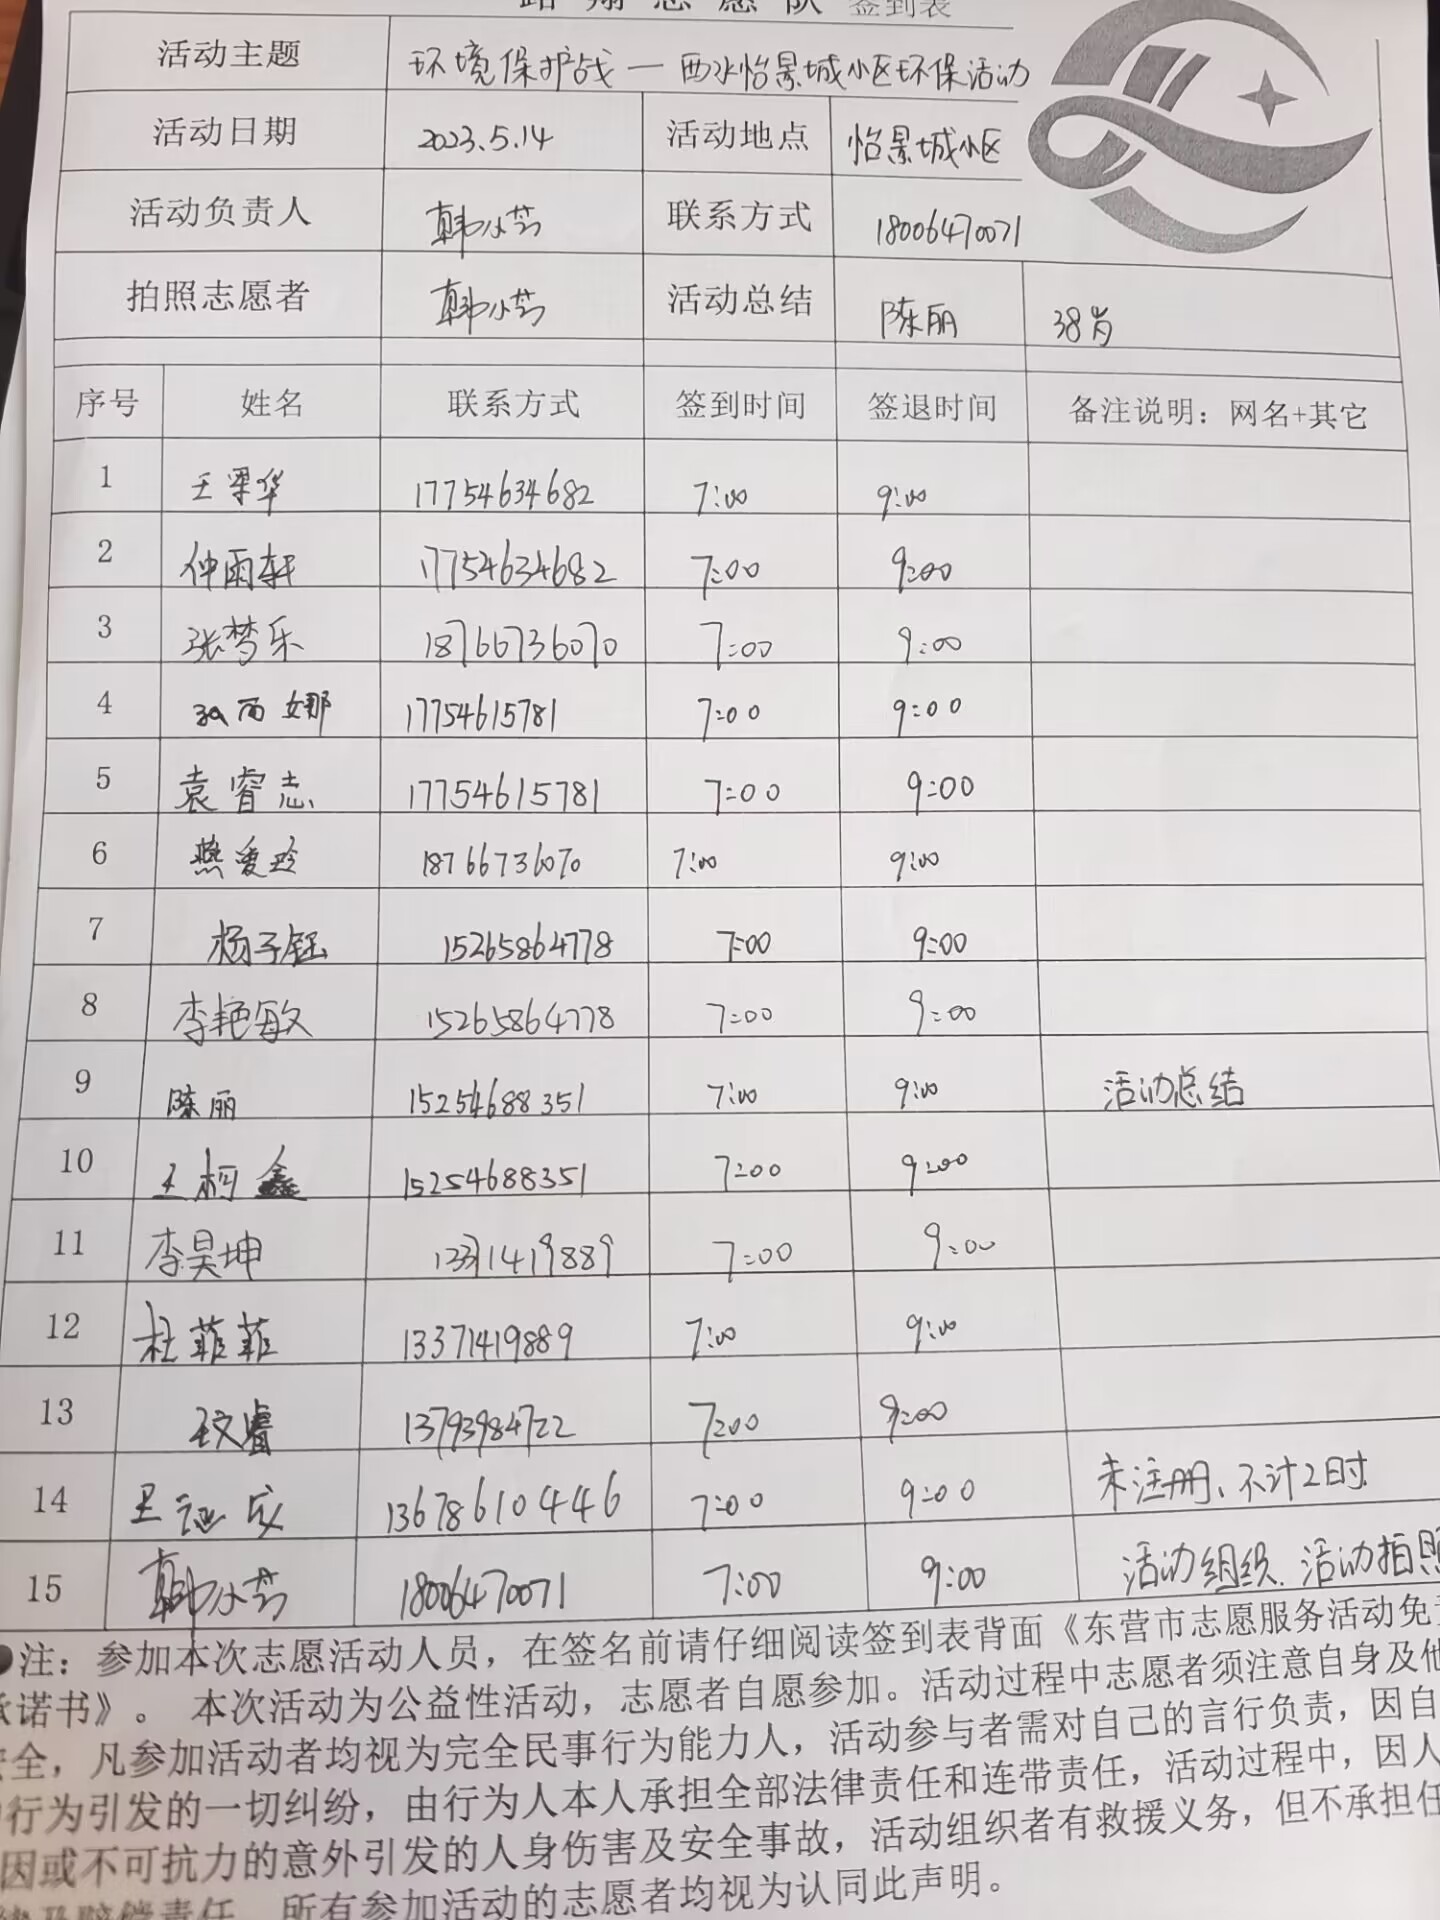 路翔志愿队 签到表
活动主题 环境保护战一西水怡景城小区环保活动
活动日期 2023.5.14 活动地点 怡景城小区
活动负责人 韩小芳 联系方式 18006470071
拍照志愿者 韩小芳 活动总结 陈丽 38岁
序号 姓名 联系方式 签到时间 签退时间 备注说明：网名+其它
1 王翠华 17754634682 7:00 9:00
2 仲雨轩 17754634682 7:00 9:00
3 张梦乐 18766736070 7:00 9:00
4 西娜 17754615781 7:00 9:00
5 袁睿志 17754615781 7:00 9:00
6 燕爱玲 18766736070 7:00 9:00
7 杨子钰 15265864778 7:00 9:00
8 李艳敏 15265864778 7:00 9:00
9 陈丽 15254688351 7:00 9:00 活动总结
10 王柯鑫 15254688351 7:00 9:00
11 李昊坤 13371419889 7:00 9:00
12 杜菲菲 13371419889 7:00 9:00
13 王文睿 13793984722 7:00 9:00
14 王 成 13678610446 7:00 9:00 未注册、不计2时
15 韩小芳 18006470071 7:00 9:00 活动组织、活动拍照
●注：参加本次志愿活动人员，在签名前请仔细阅读签到表背面《东营市志愿服务活动免责
承诺书》。 本次活动为公益性活动，志愿者自愿参加。活动过程中志愿者须注意自身及他
安全，凡参加活动者均视为完全民事行为能力人，活动参与者需对自己的言行负责，因自
行为引发的一切纠纷，由行为人本人承担全部法律责任和连带责任，活动过程中，因人
因或不可抗力的意外引发的人身伤害及安全事故，活动组织者有救援义务，但不承担任
及赔偿责任。所有参加活动的志愿者均视为认同此声明。